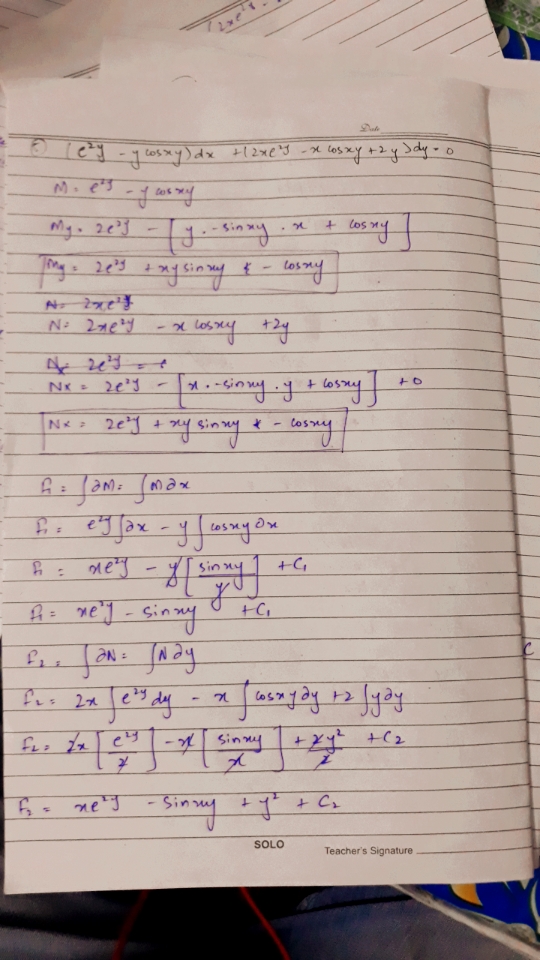 2xe²y
Date
(e²ʸ - y cosxy) dx + (2xe²ʸ - x cosxy + 2y) dy = 0
M = e²ʸ - y cosxy
My = 2e²ʸ - [y · -sinxy · x + cosxy]
My = 2e²ʸ + xy sinxy - cosxy
N = 2xe²ʸ
N = 2xe²ʸ - x cosxy + 2y
Nx = 2e²ʸ =
Nx = 2e²ʸ - [x · -sinxy · y + cosxy] + 0
Nx = 2e²ʸ + xy sinxy - cosxy
f₁ = ∫∂M = ∫M∂x
f₁ = e²ʸ∫∂x - y∫cosxy ∂x
f₁ = xe²ʸ - y[sinxy/y] + C₁
f₁ = xe²ʸ - sinxy + C₁
f₂ = ∫∂N = ∫N∂y
f₂ = 2x∫e²ʸ dy - x∫cosxy ∂y + 2∫y∂y
f₂ = 2x[e²ʸ/2] - x[sinxy/x] + 2y²/2 + C₂
f₂ = xe²ʸ - sinxy + y² + C₂
SOLO
Teacher's Signature
C